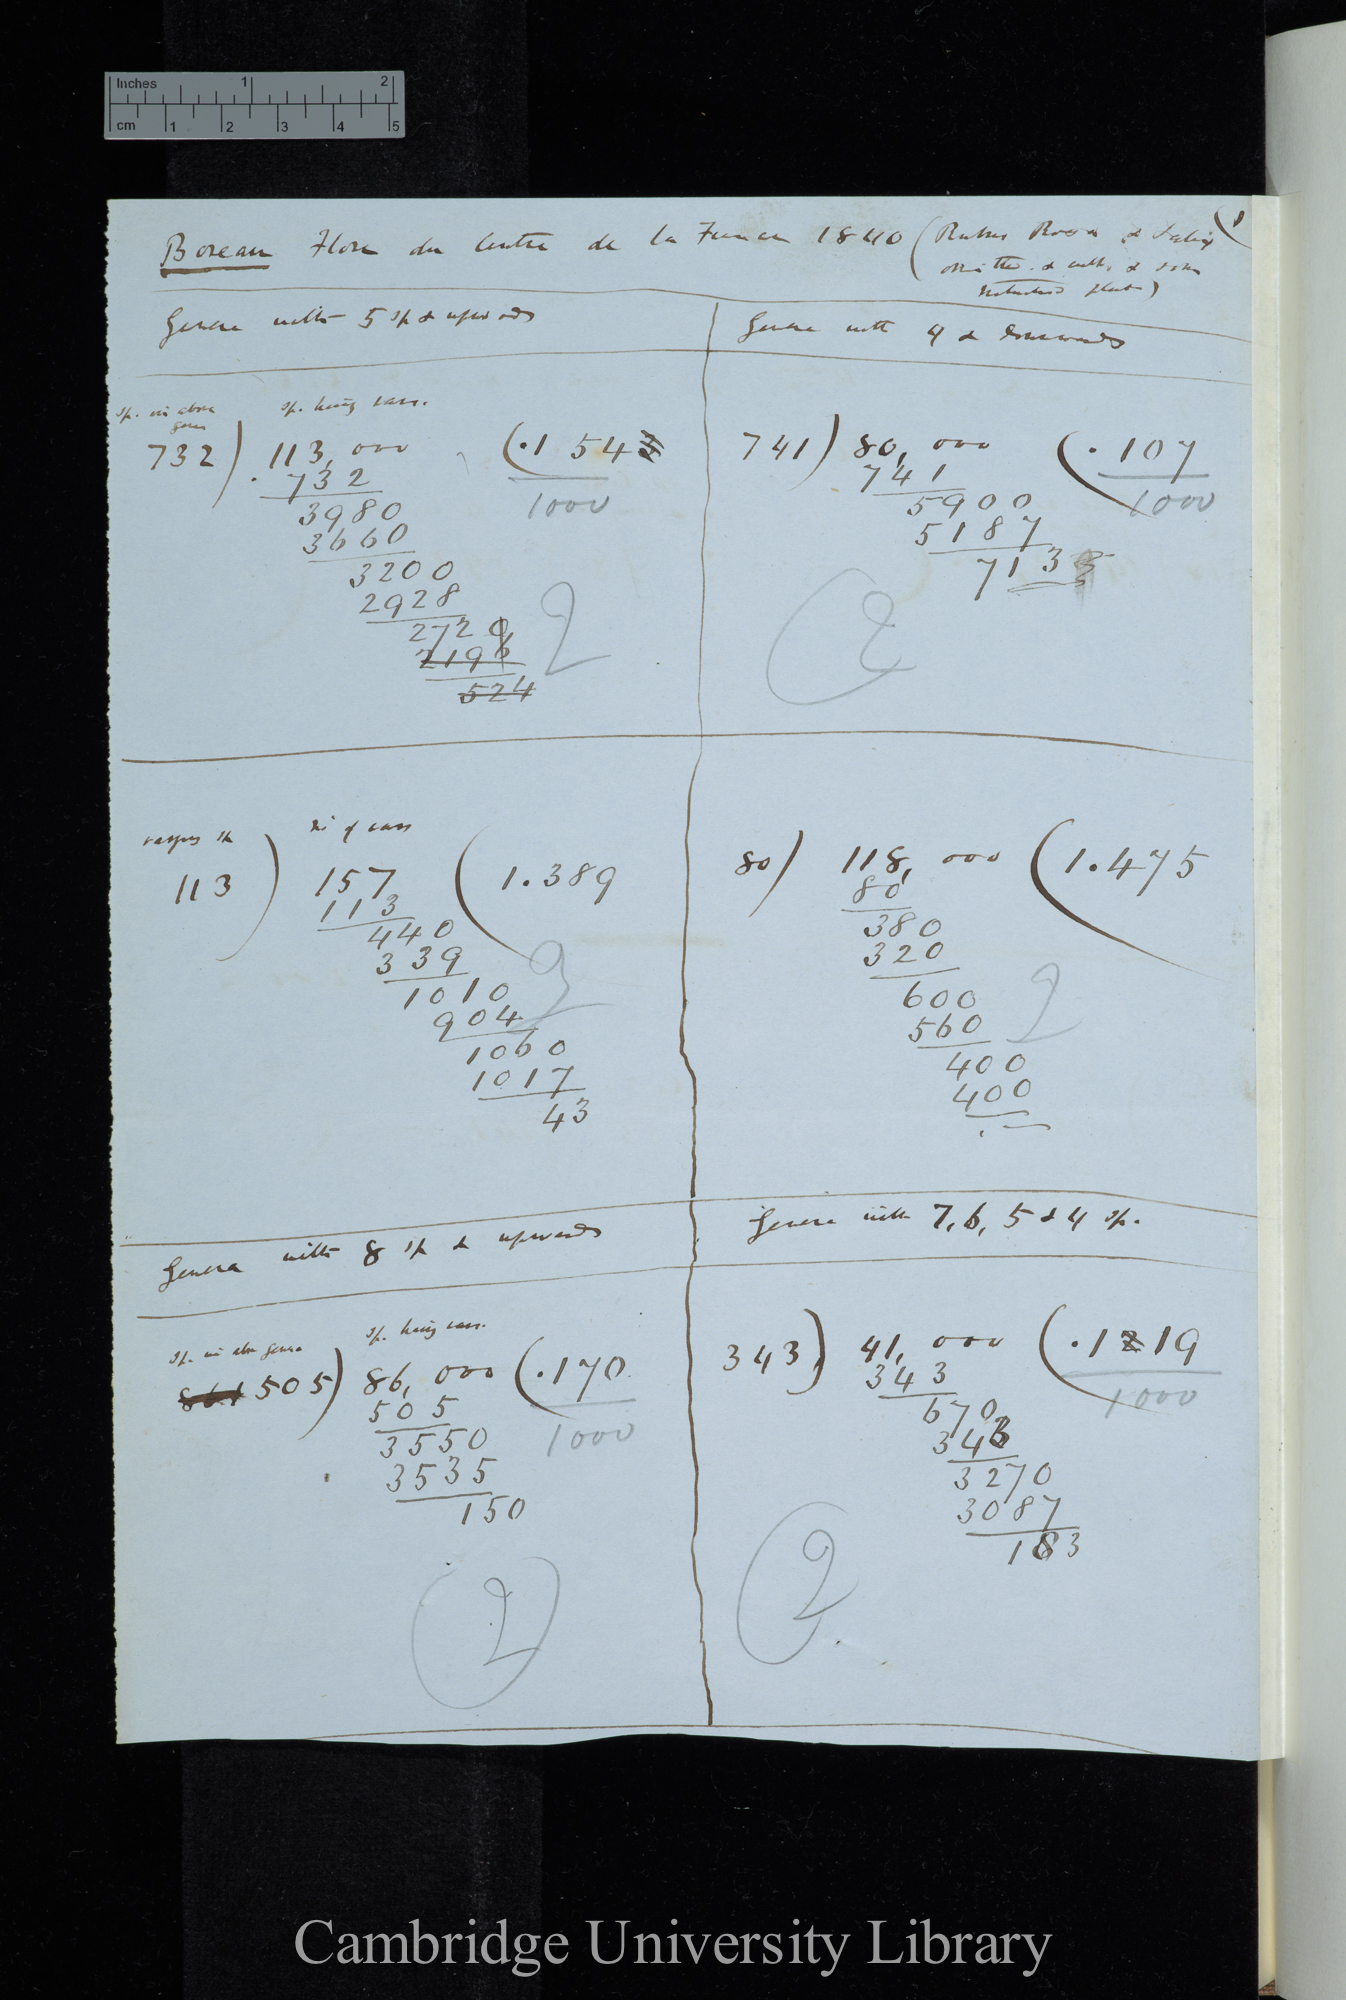 Inches 1 2
cm 1 2 3 4 5
Boreau Flore du Centre de la France 1840 (Rubus Rosa & Salix
omitted & cult. & some
naturalised plants)
Genera with 5 sp & upwards
Genera with 4 & downwards
sp. in above
genera
sp. having vars.
732) 113,000 (.154
732
1000
3980
3660
3200
2928
2720
2196
524
2
741) 80,000 (.107
741
1000
5900
5187
713
2
No of vars
113) 157 (1.389
113
440
339
1010
904
1060
1017
43
2
80) 118,000 (1.475
80
380
320
600
560
400
400
2
Genera with 8 sp & upwards
Genera with 7, 6, 5 & 4 sp.
sp. in above genera
sp. having vars.
505) 86,000 (.170
505
1000
3550
3535
150
2
343) 41,000 (.119
343
1000
670
343
3270
3087
183
2
Cambridge University Library